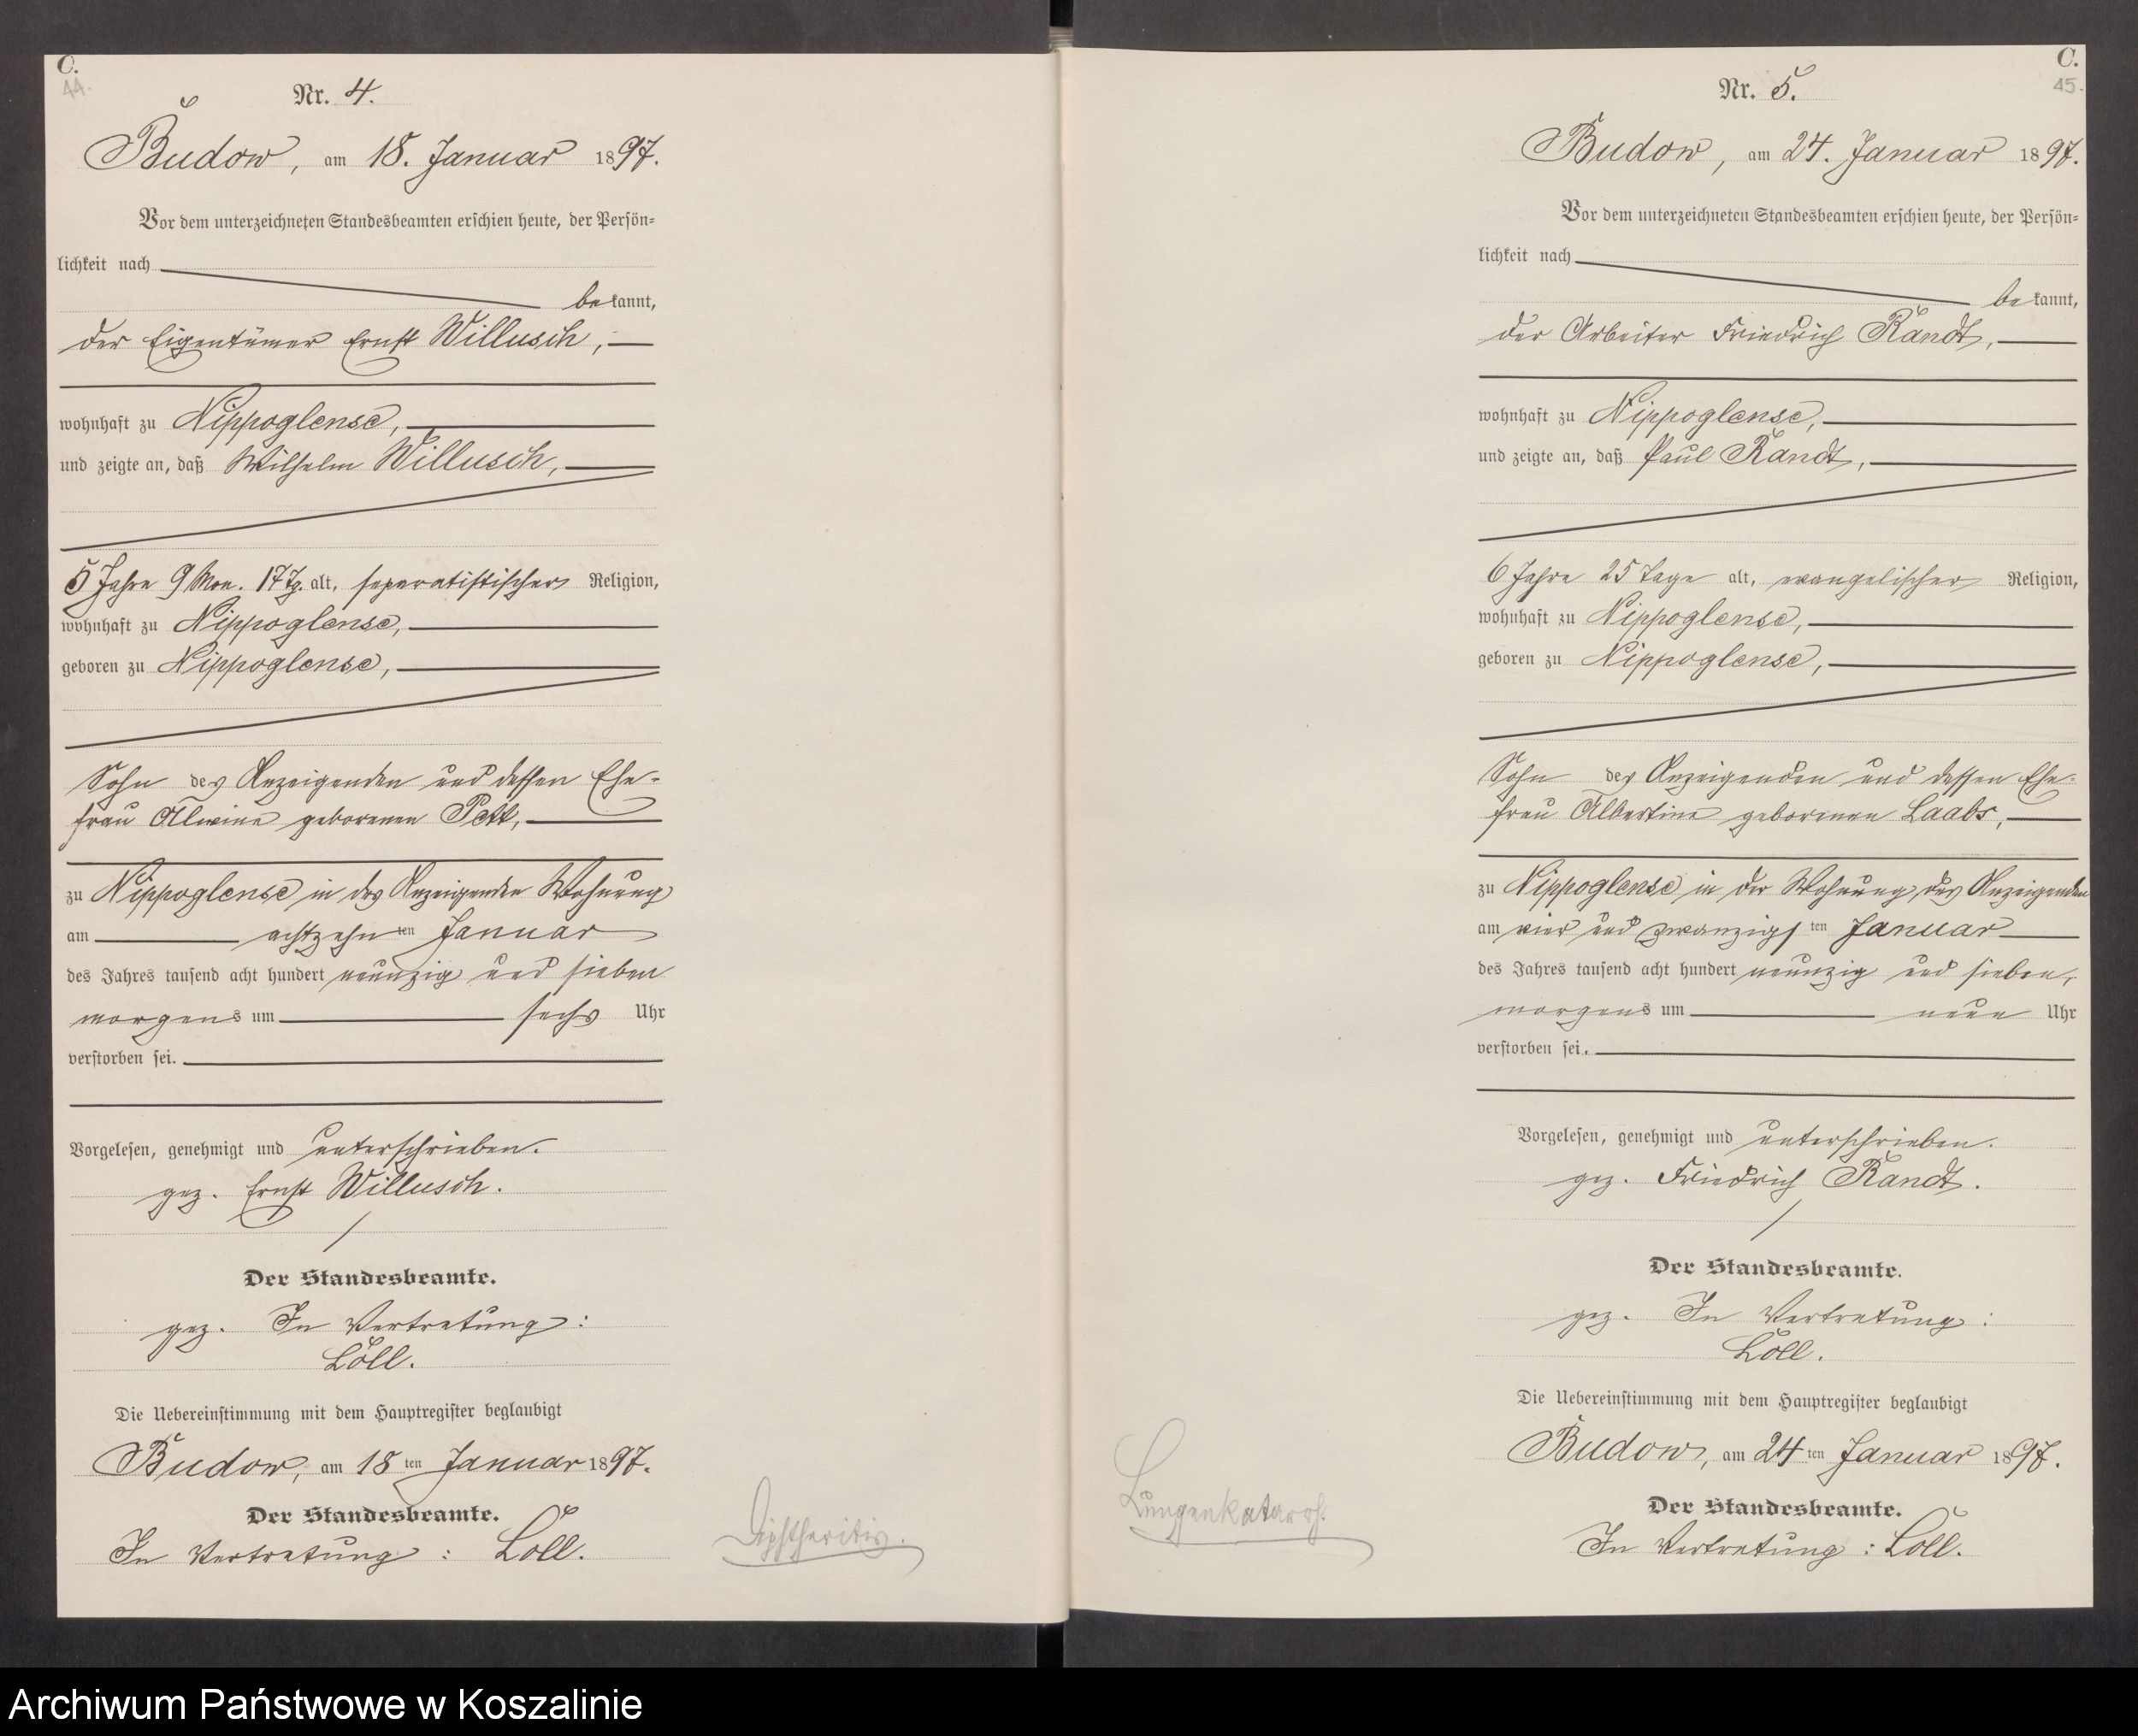 C.
44.
Nr. 4.
Budow, am 18. Januar 1897.
Vor dem unterzeichneten Standesbeamten erschien heute, der Persön-
lichkeit nach
bekannt,
der Eigentümer Ernst Willusch,
wohnhaft zu Nippoglense,
und zeigte an, daß Wilhelm Willusch,
5 Jahre 9 Mon. 17 Tg. alt, separatistischer Religion,
wohnhaft zu Nippoglense,
geboren zu Nippoglense,
Sohn des Anzeigenden und dessen Ehe-
frau Alwine geborenen Pett,
zu Nippoglense in des Anzeigenden Wohnung
am achtzehnten Januar
des Jahres tausend acht hundert neunzig und sieben
morgens um sechs Uhr
verstorben sei.
Vorgelesen, genehmigt und unterschrieben.
gez. Ernst Willusch.
Der Standesbeamte.
gez. In Vertretung:
Löll.
Die Uebereinstimmung mit dem Hauptregister beglaubigt
Budow, am 18ten Januar 1897.
Der Standesbeamte.
In Vertretung: Löll.
Diphtheritis.
C.
45.
Nr. 5.
Budow, am 24. Januar 1897.
Vor dem unterzeichneten Standesbeamten erschien heute, der Persön-
lichkeit nach
bekannt,
der Arbeiter Friedrich Randt,
wohnhaft zu Nippoglense,
und zeigte an, daß Paul Randt,
6 Jahre 25 Tage alt, evangelischer Religion,
wohnhaft zu Nippoglense,
geboren zu Nippoglense,
Sohn des Anzeigenden und dessen Ehe-
frau Albertine geborenen Laabs,
zu Nippoglense in der Wohnung des Anzeigenden
am vier und zwanzigsten Januar
des Jahres tausend acht hundert neunzig und sieben,
morgens um neun Uhr
verstorben sei.
Vorgelesen, genehmigt und unterschrieben.
gez. Friedrich Randt.
Der Standesbeamte.
gez. In Vertretung:
Löll.
Die Uebereinstimmung mit dem Hauptregister beglaubigt
Budow, am 24ten Januar 1897.
Der Standesbeamte.
In Vertretung: Löll.
Lungenkatarrh.
Archiwum Państwowe w Koszalinie